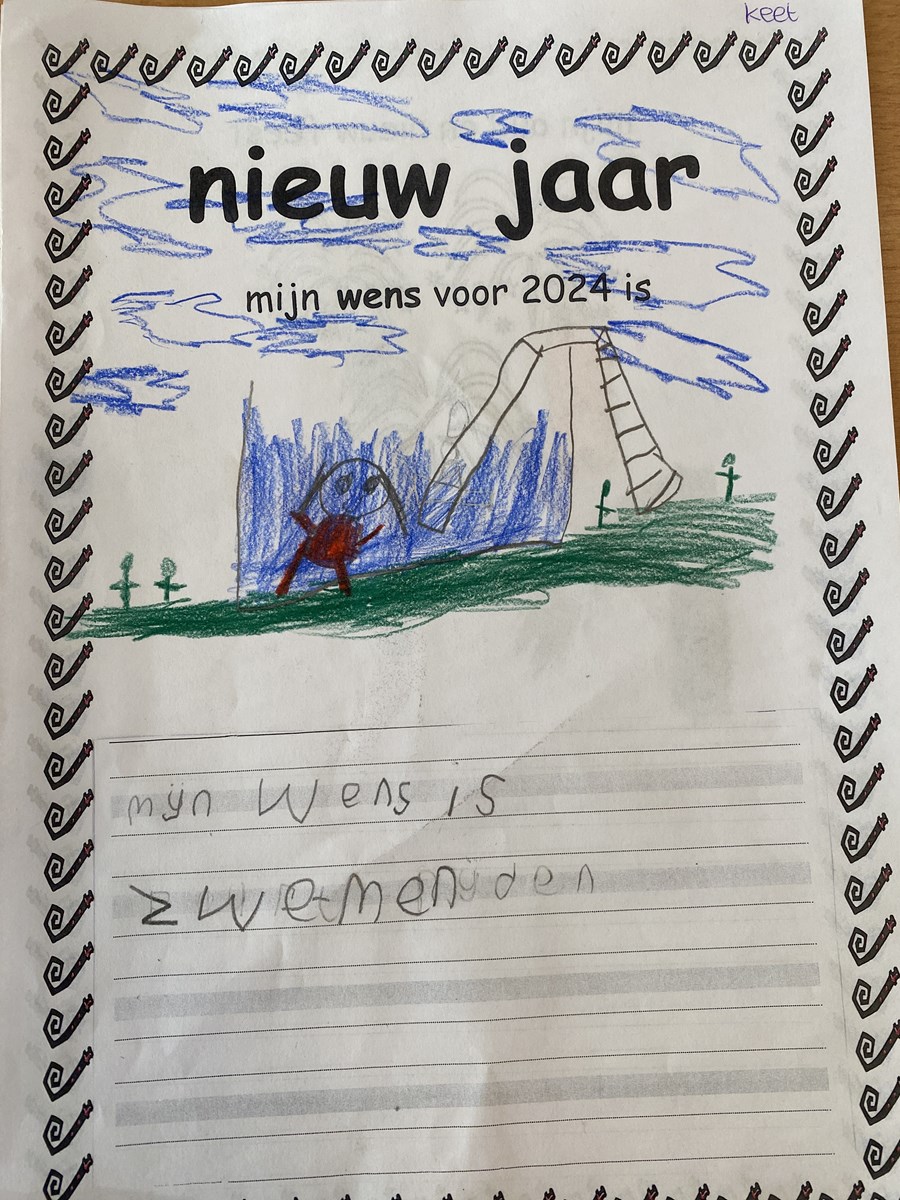 keet
nieuw jaar
mijn wens voor 2024 is
mijn wens is